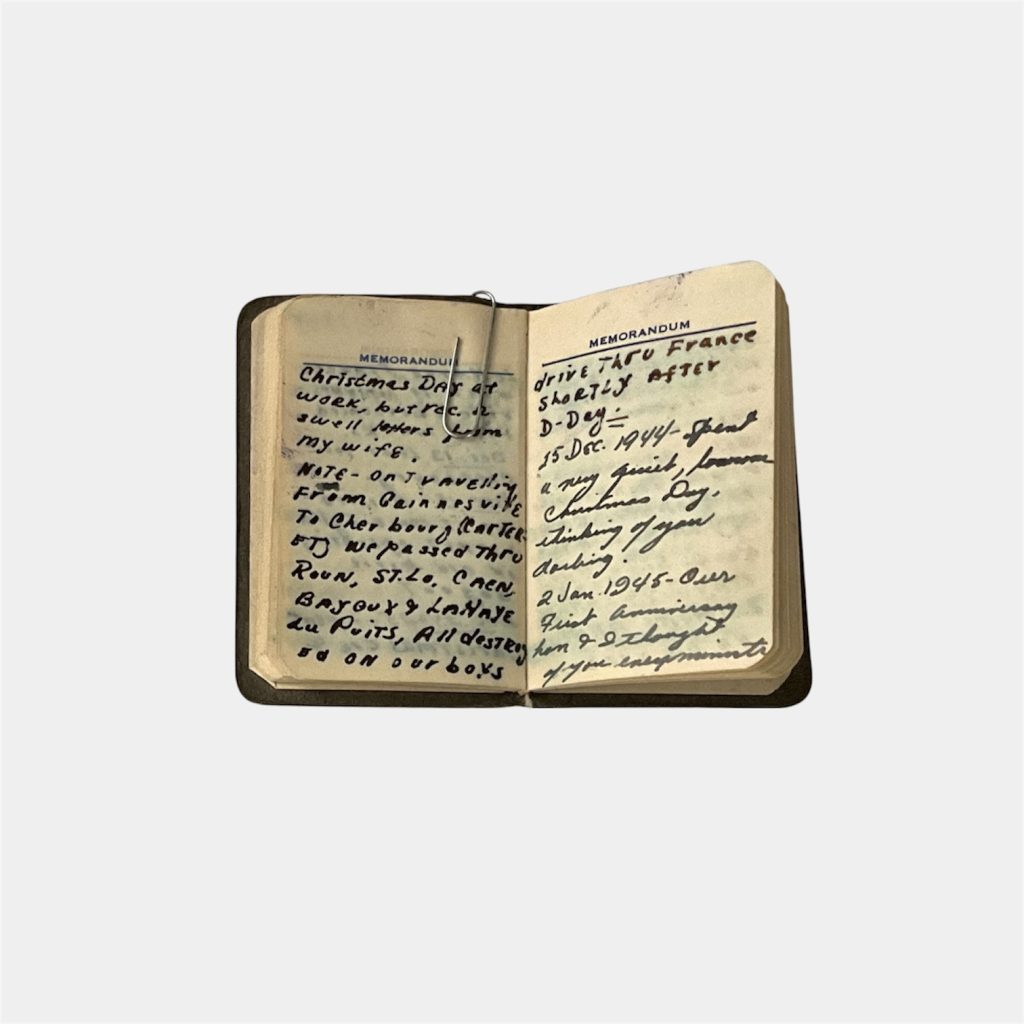 MEMORANDUM
Christmas Day at
work, but rec. a
swell letters from
my wife.
NOTE- On Travelling
From Gainnesville
To Cherbourg (CARTER-
ET) we passed Thru
Roun, ST. Lo, CAEN,
BAYOUX & LAHAYE
du PuiTS, All desTRoy
ed ON our boys
MEMORANDUM
drive Thru France
shortly AfTER
D-Day:-
25 Dec. 1944- Spent
a very quiet,
Christmas Day,
thinking of you
darling.
2 Jan. 1945- Our
First Anniversay
hon & I thought
of you every minute